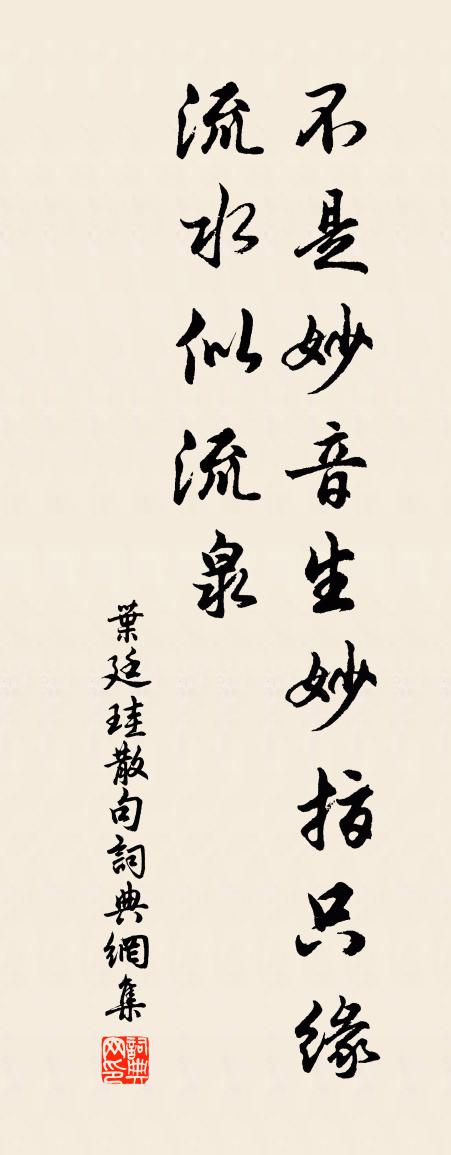 不是妙音生妙指只緣
流水似流泉
葉廷珪散句詞典網集
詞典网印